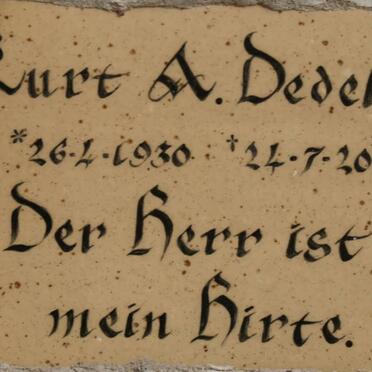 Kurt A. Dedel
*26·4·1930 †24·7·20
Der Herr ist
mein Hirte.